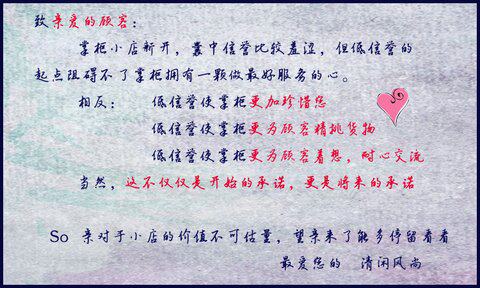 致亲爱的顾客：
掌柜小店新开，囊中信誉比较羞涩，但低信誉的
起点阻碍不了掌柜拥有一颗做最好服务的心。
相反： 低信誉使掌柜更加珍惜您
低信誉使掌柜更为顾客精挑货物
低信誉使掌柜更为顾客着想，耐心交流
当然，这不仅仅是开始的承诺，更是将来的承诺
So 亲对于小店的价值不可估量，望亲来了能多停留看看
最爱您的 清闲风尚